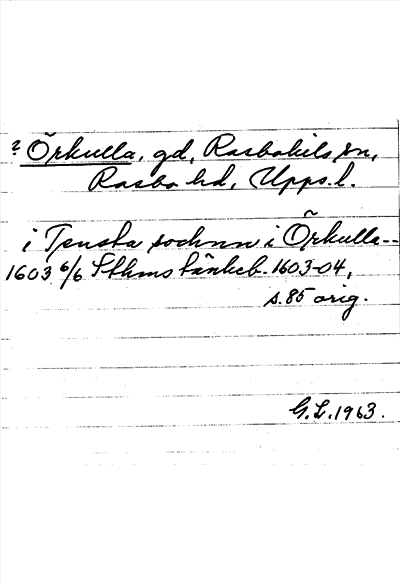 ? Örkulla, gd, Rasbokils sn,
Rasbo hd, Upps. l.
i Tensta sochnn i Örkulla--
1603 6/6 Sthms tänkeb. 1603-04,
s. 85 orig.
G.L. 1963.